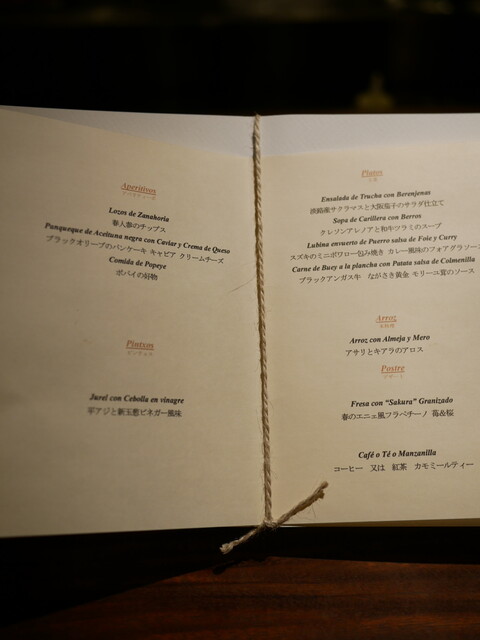 Aperitivos
Lozos de Zanahoria
春人参のチップス
Panqueque de Aceituna negra con Caviar y Crema de Queso
ブラックオリーブのパンケーキ キャビア クリームチーズ
Comida de Popeye
ポパイの好物
Pintxos
ピンチョス
Jurel con Cebolla en vinagre
平アジと新玉葱ビネガー風味
Platos
Ensalada de Trucha con Berenjenas
淡路産サクラマスと大阪茄子のサラダ仕立て
Sopa de Carillera con Berros
クレソンアレノアと和牛ツラミのスープ
Lubina envuerto de Puerro salsa de Foie y Curry
スズキのミニポワロー包み焼き カレー風味のフォアグラソー
Carne de Buey a la plancha con Patata salsa de Colmenilla
ブラックアンガス牛 ながさき黄金 モリーユ茸のソース
Arroz
米料理
Arroz con Almeja y Mero
アサリとキアラのアロス
Postre
デザート
Fresa con “Sakura” Granizado
春のエニェ風フラペチーノ 苺&桜
Café o Té o Manzanilla
コーヒー 又は 紅茶 カモミールティー